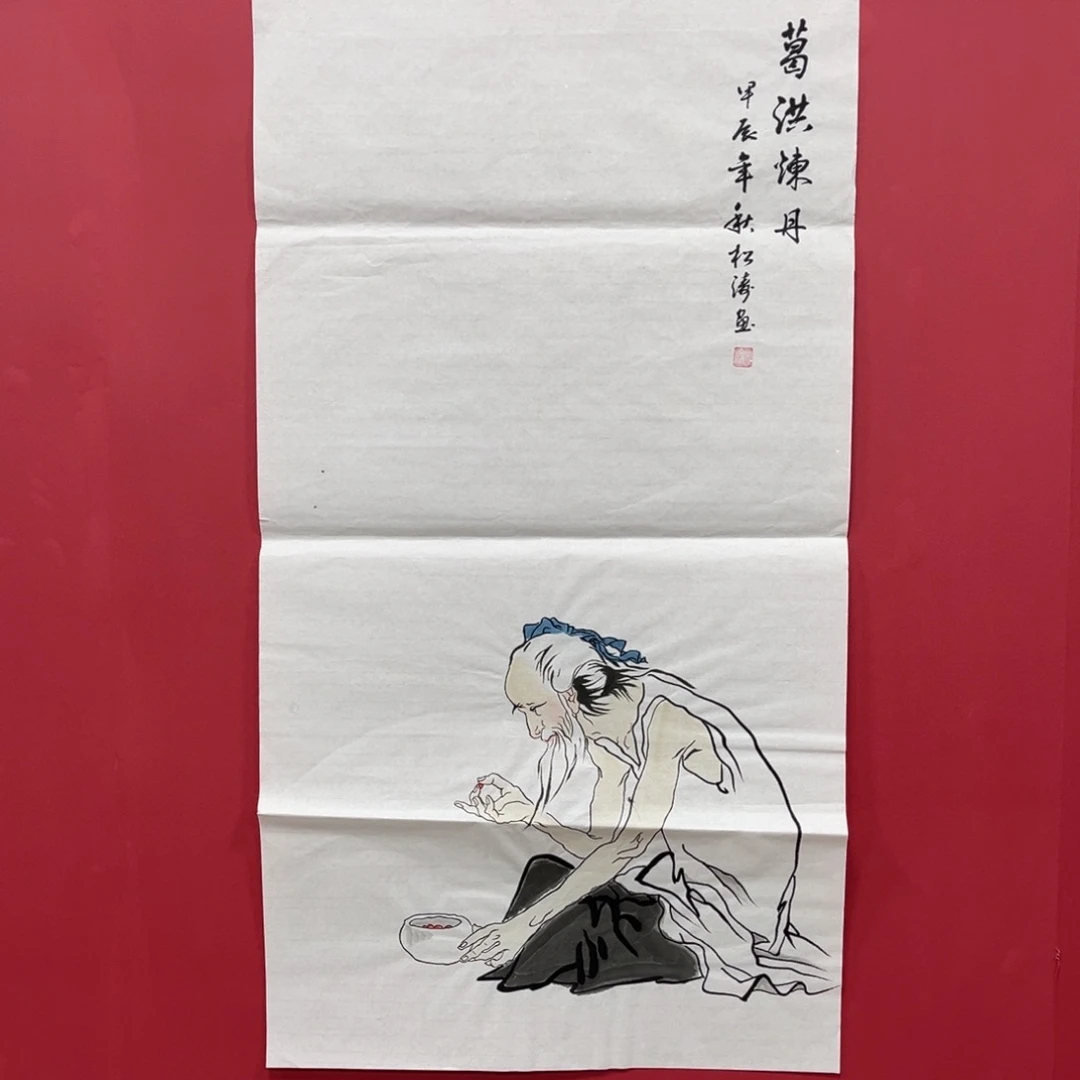 葛洪煉丹
甲辰年秋松濤画